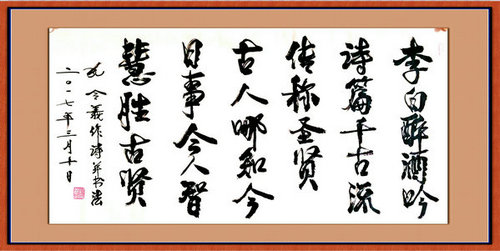 李白醉酒吟
诗篇千古流
传称圣贤
古人哪知今
日事今人智
慧胜古贤
孔令義作诗并书法
二〇〇七年三月十日